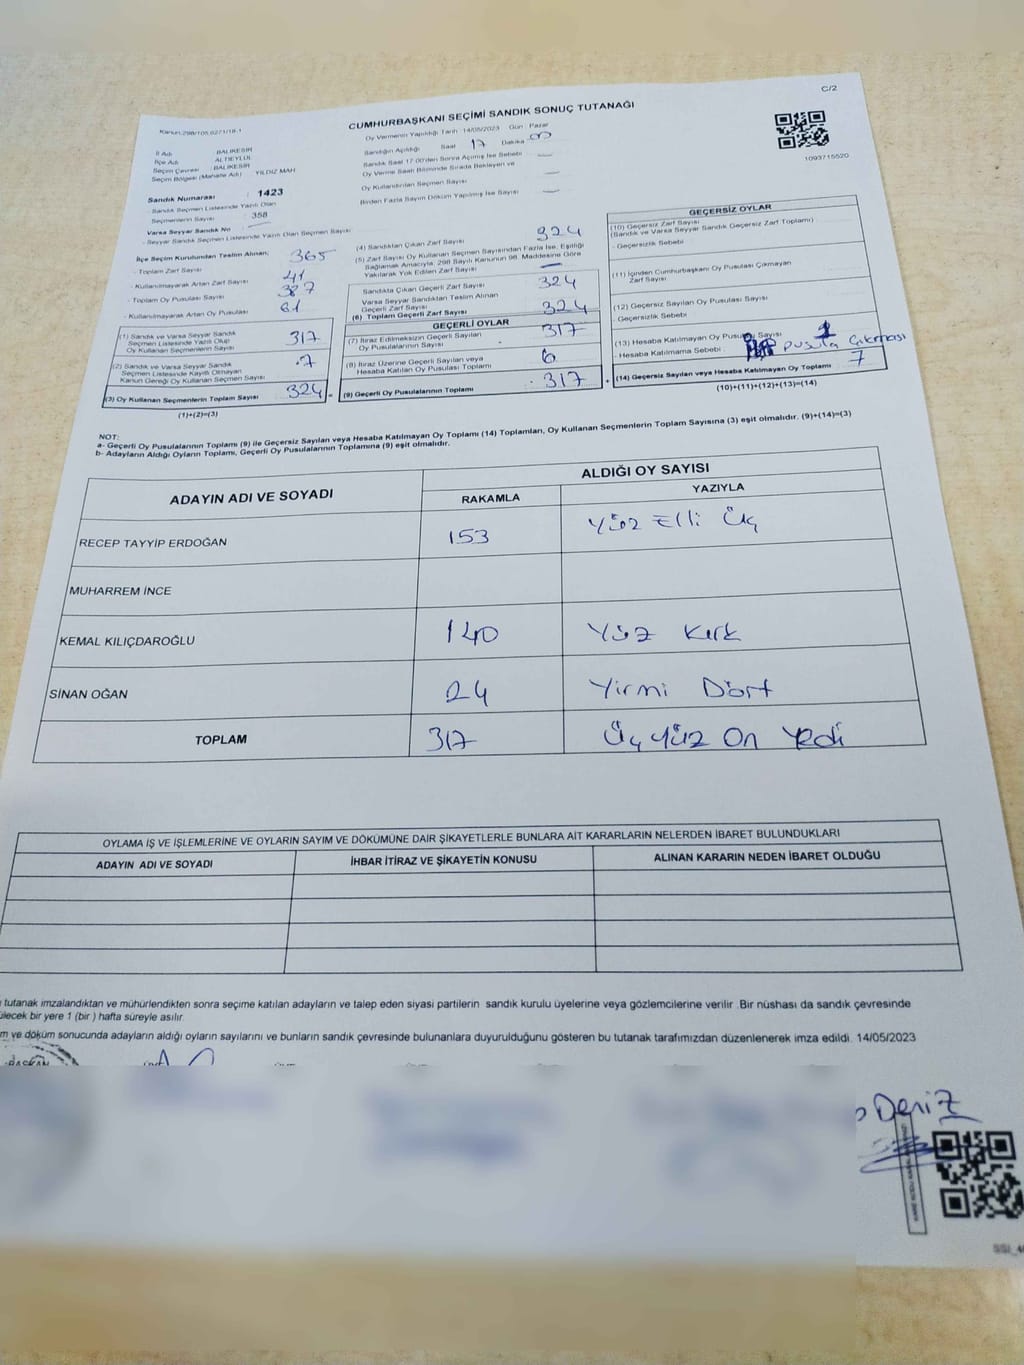 C/2
CUMHURBAŞKANI SEÇİMİ SANDIK SONUÇ TUTANAĞI
Oy Vermenin Yapıldığı Tarih :14/05/2023 Gün : Pazar
Sandığın Açıldığı Saat 17 Dakika 00
Sandık Saat 17:00'den Sonra Açılmış İse Sebebi —
Oy Verme Saati Bitiminde Sırada Bekleyen ve
Oy Kullandırılan Seçmen Sayısı —
Birden Fazla Sayım Döküm Yapılmış İse Sayısı —
1093715520
İl Adı : BALIKESİR
İlçe Adı : ALTIEYLÜL
Seçim Çevresi : BALIKESİR
Seçim Bölgesi (Mahalle Adı) : YILDIZ MAH
Sandık Numarası : 1423
- Sandık Seçmen Listesinde Yazılı Olan
Seçmenlerin Sayısı : 358
Varsa Seyyar Sandık No
- Seyyar Sandık Seçmen Listesinde Yazılı Olan Seçmen Sayısı
İlçe Seçim Kurulundan Teslim Alınan;
- Toplam Zarf Sayısı 365
- Kullanılmayarak Artan Zarf Sayısı 41
- Toplam Oy Pusulası Sayısı
- Kullanılmayarak Artan Oy Pusulası Sayısı 61
(1) Sandık ve Varsa Seyyar Sandık
Seçmen Listesinde Yazılı Olup
Oy Kullanan Seçmenlerin Sayısı 317
(2) Sandık ve Varsa Seyyar Sandık
Seçmen Listesinde Kayıtlı Olmayan
Kanun Gereği Oy Kullanan Seçmen Sayısı 7
(3) Oy Kullanan Seçmenlerin Toplam Sayısı 324
(1)+(2)=(3)
(4) Sandıktan Çıkan Zarf Sayısı 324
(5) Zarf Sayısı Oy Kullanan Seçmen Sayısından Fazla İse, Eşitliği
Sağlamak Amacıyla, 298 Sayılı Kanunun 98. Maddesine Göre
Yakılarak Yok Edilen Zarf Sayısı —
Sandıkta Çıkan Geçerli Zarf Sayısı 324
Varsa Seyyar Sandıktan Teslim Alınan
Geçerli Zarf Sayısı
(6) Toplam Geçerli Zarf Sayısı 324
GEÇERLİ OYLAR
(7) İtiraz Edilmeksizin Geçerli Sayılan
Oy Pusulalarının Sayısı 317
(8) İtiraz Üzerine Geçerli Sayılan veya
Hesaba Katılan Oy Pusulası Toplamı
(9) Geçerli Oy Pusulalarının Toplamı 317
GEÇERSİZ OYLAR
(10) Geçersiz Zarf Sayısı
(Sandık ve Varsa Seyyar Sandık Geçersiz Zarf Toplamı)
- Geçersizlik Sebebi
(11) İçinden Cumhurbaşkanı Oy Pusulası Çıkmayan
Zarf Sayısı
(12) Geçersiz Sayılan Oy Pusulası Sayısı
- Geçersizlik Sebebi
(13) Hesaba Katılmayan Oy Pusulası Sayısı
- Hesaba Katılmama Sebebi pusula çıkması
(14) Geçersiz Sayılan veya Hesaba Katılmayan Oy Toplamı 7
(10)+(11)+(12)+(13)=(14)
NOT:
a- Geçerli Oy Pusulalarının Toplamı (9) ile Geçersiz Sayılan veya Hesaba Katılmayan Oy Toplamı (14) Toplamları, Oy Kullanan Seçmenlerin Toplam Sayısına (3) eşit olmalıdır. (9)+(14)=(3)
b- Adayların Aldığı Oyların Toplamı, Geçerli Oy Pusulalarının Toplamına (9) eşit olmalıdır.
ADAYIN ADI VE SOYADI
ALDIĞI OY SAYISI
RAKAMLA YAZIYLA
RECEP TAYYİP ERDOĞAN 153 Yüz Elli Üç
MUHARREM İNCE
KEMAL KILIÇDAROĞLU 140 Yüz Kırk
SİNAN OĞAN 24 Yirmi Dört
TOPLAM 317 Üç Yüz On Yedi
OYLAMA İŞ VE İŞLEMLERİNE VE OYLARIN SAYIM VE DÖKÜMÜNE DAİR ŞİKAYETLERLE BUNLARA AİT KARARLARIN NELERDEN İBARET BULUNDUKLARI
ADAYIN ADI VE SOYADI İHBAR İTİRAZ VE ŞİKAYETİN KONUSU ALINAN KARARIN NEDEN İBARET OLDUĞU
tutanak imzalandıktan ve mühürlendikten sonra seçime katılan adayların ve talep eden siyasi partilerin sandık kurulu üyelerine veya gözlemcilerine verilir. Bir nüshası da sandık çevresinde
ülecek bir yere 1 (bir ) hafta süreyle asılır.
m ve döküm sonucunda adayların aldığı oyların sayılarını ve bunların sandık çevresinde bulunanlara duyurulduğunu gösteren bu tutanak tarafımızdan düzenlenerek imza edildi. 14/05/2023
BAŞKAN
Deniz